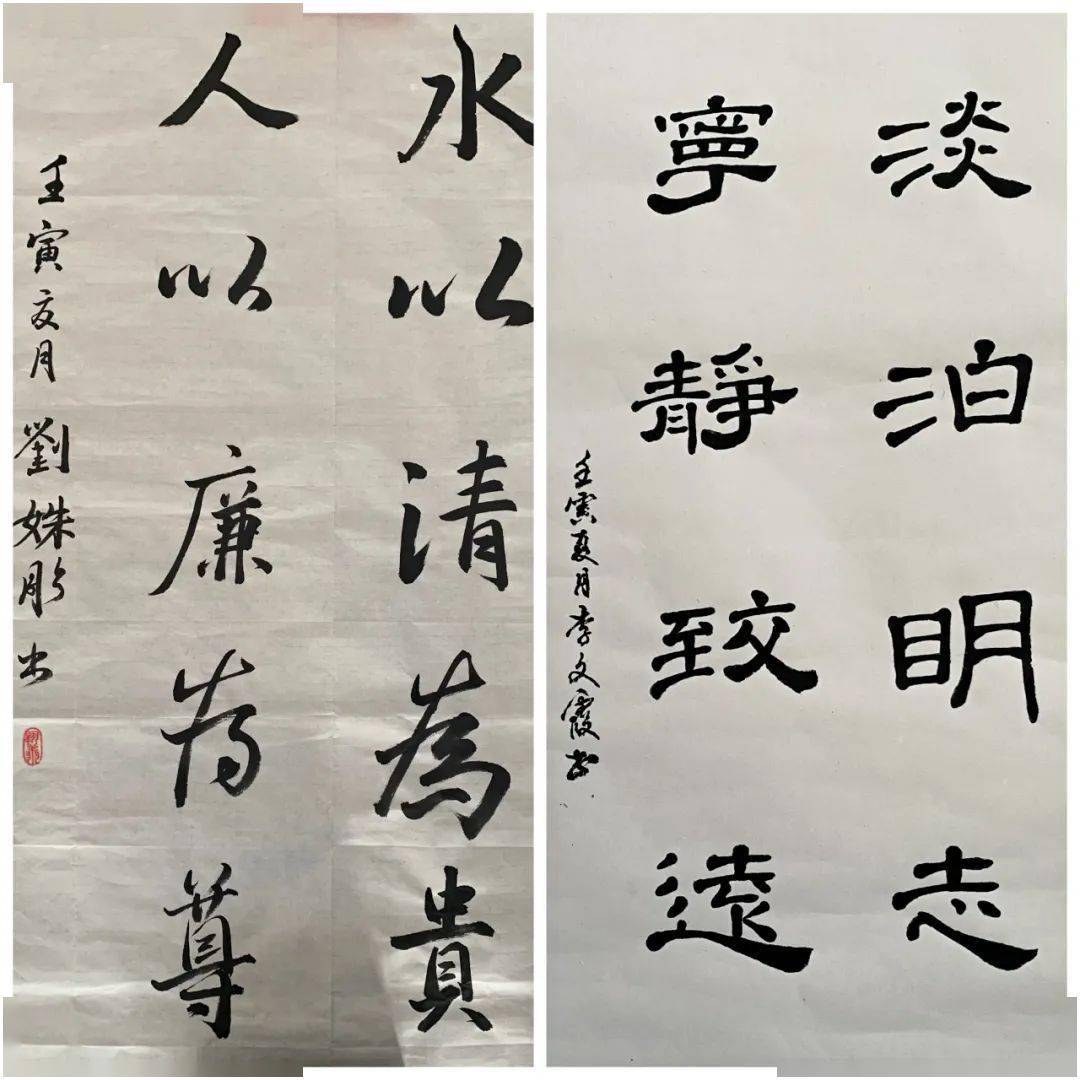 水以清為貴
人以廉为尊
壬寅夏月 劉姝彤书
淡泊明志
寧靜致遠
壬寅夏月李文霞书